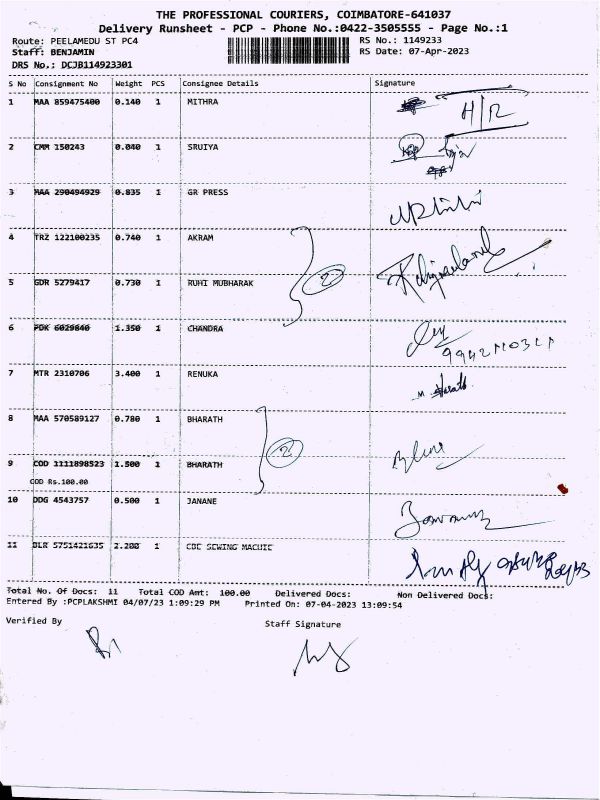 THE PROFESSIONAL COURIERS, COIMBATORE-641037
Delivery Runsheet - PCP - Phone No.:0422-3505555 - Page No.:1
Route: PEELAMEDU ST PC4 RS No.: 1149233
Staff: BENJAMIN RS Date: 07-Apr-2023
DRS No.: DCJB114923301
S No Consignment No Weight PCS Consignee Details Signature
1 MAA 859475400 0.140 1 MITHRA H/R
2 CMM 150243 0.040 1 SRUIYA
3 MAA 290494929 0.835 1 GR PRESS
4 TRZ 122100235 0.740 1 AKRAM
2
5 GDR 5279417 0.730 1 RUHI MUBHARAK
6 PDK 6029840 1.350 1 CHANDRA
7 MTR 2310706 3.400 1 RENUKA
8 MAA 570589127 0.780 1 BHARATH
2
9 COD 1111898523 1.500 1 BHARATH
COD Rs.100.00
10 DDG 4543757 0.500 1 JANANE
11 BLR 5751421635 2.200 1 CBE SEWING MACHIE
Total No. Of Docs: 11 Total COD Amt: 100.00 Delivered Docs: Non Delivered Docs:
Entered By :PCPLAKSHMI 04/07/23 1:09:29 PM Printed On: 07-04-2023 13:09:54
Verified By Staff Signature